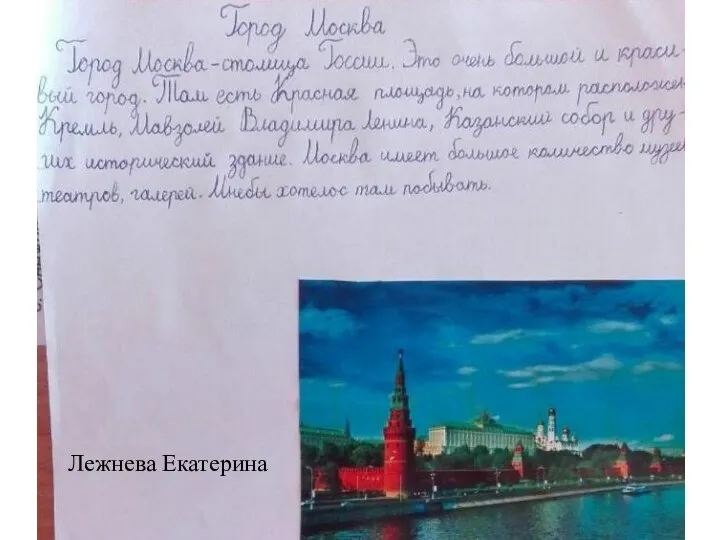 Город Москва
Город Москва-столица России. Это очень большой и краси-
вый город. Там есть Красная площадь, на котором расположен
Кремль, Мавзолей Владимира Ленина, Казанский собор и дру-
гих исторический здание. Москва имеет большое количество музеев
театров, галерей. Мнебы хотелос там побывать.
Лежнева Екатерина